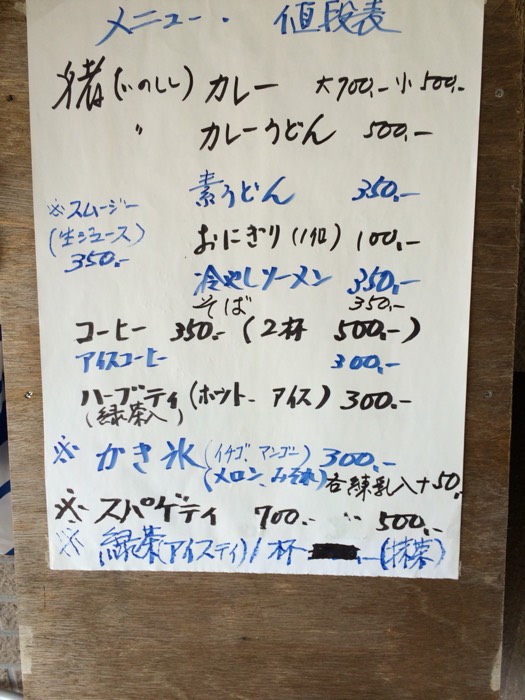 メニュー・値段表
猪(いのしし)カレー 大700.- 小500.-
〃 カレーうどん 500.-
素うどん 350.-
※スムージー
(生ジュース)
350.-
おにぎり(1個) 100.-
冷やしソーメン 350.-
そば 350.-
コーヒー 350.- (2杯 500.-)
アイスコーヒー 300.-
ハーブティ(ホット- アイス) 300.-
(緑茶入)
※ かき氷(イチゴ、マンゴー) 300.-
(メロン、みぞれ) 各練乳入+50.
※ スパゲティ 700.- 〃 500.-
※ 緑茶(アイスティ)1杯 .- (抹茶)